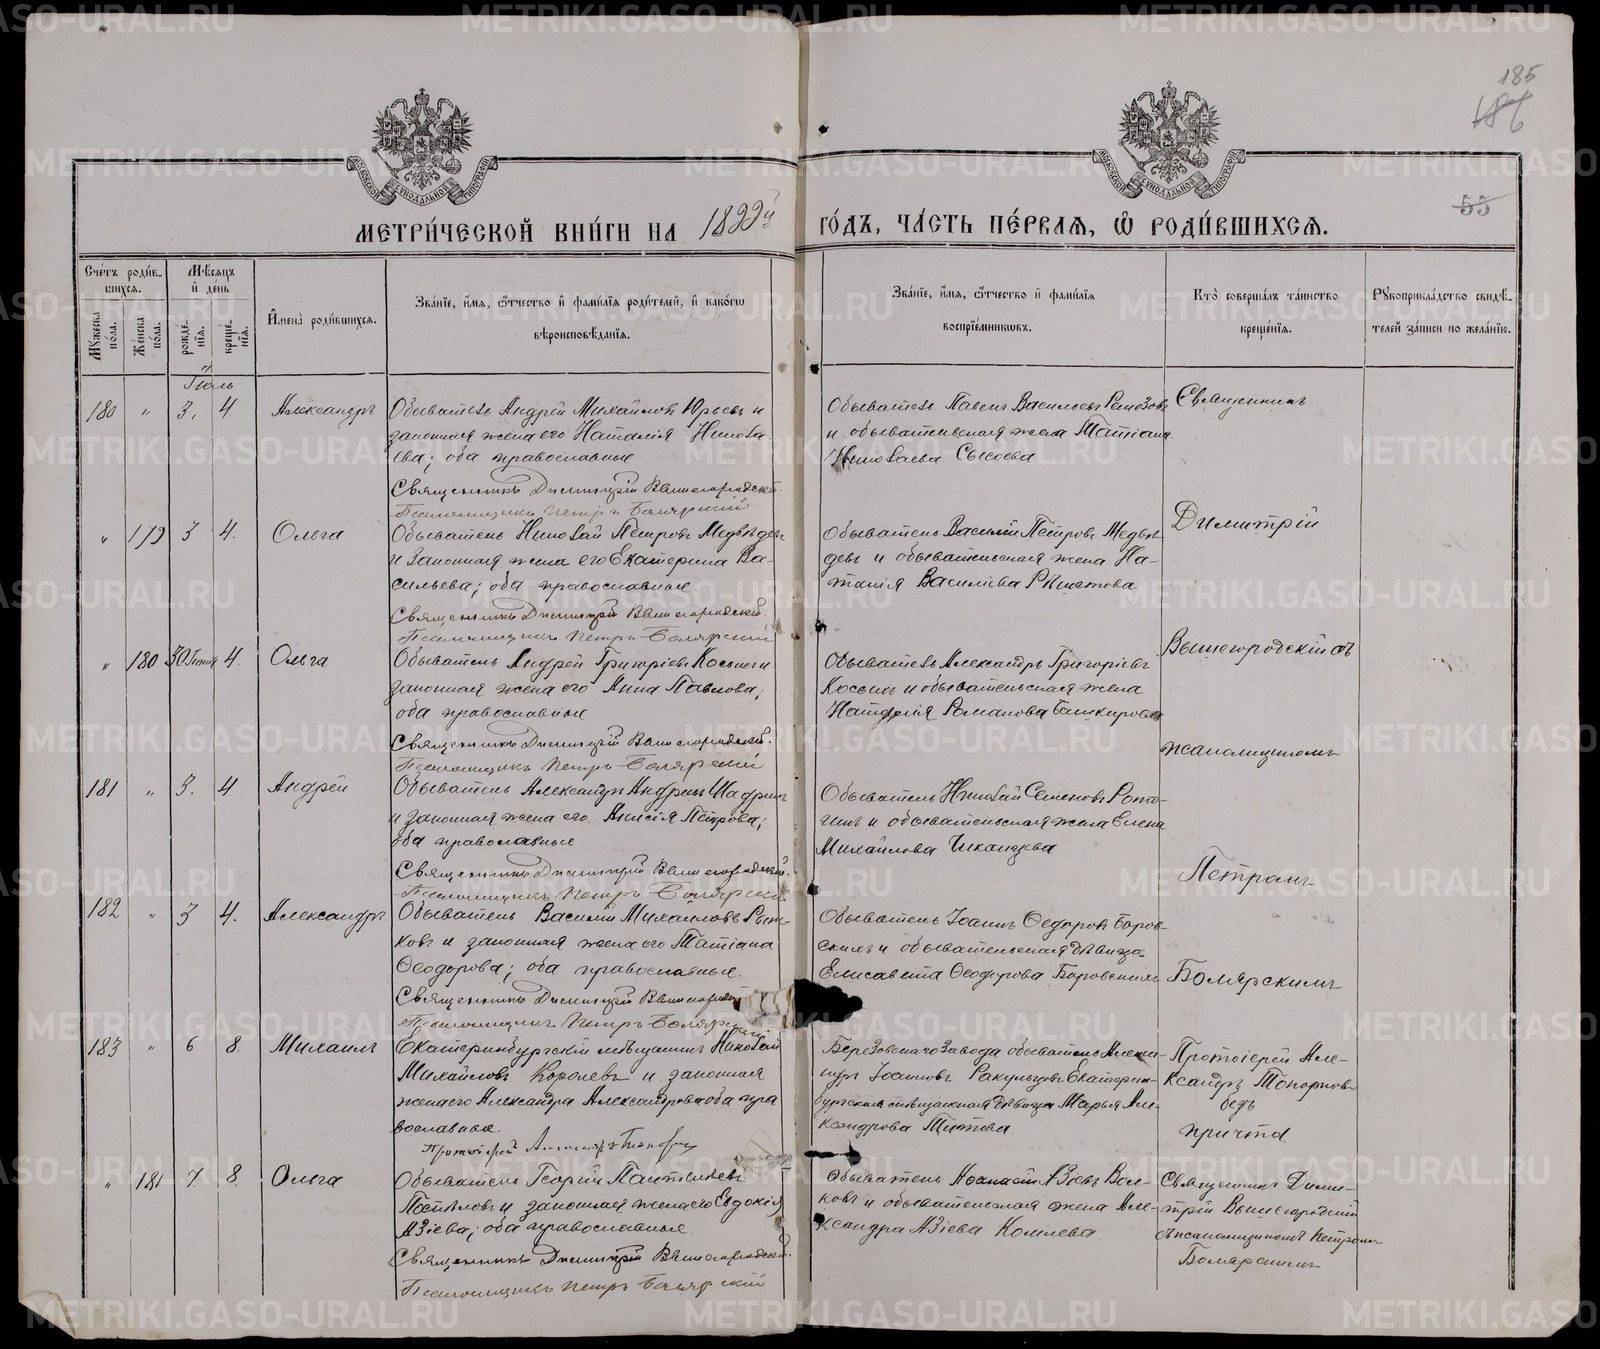 185
186
55
МЕТРИ́ЧЕСКОЙ КНИ́ГИ НА 1899й ГО́ДЪ, ЧА́СТЬ ПЕ́РВАЯ, Ѡ РОДИ́ВШИХСЯ.
Сче́тъ роди́в-
шихся.
Мꙋжеска по́ла.
Же́нска по́ла.
Мѣ́сяцъ и де́нь
рожде́нїя.
креще́нїя.
И҆мена̀ роди́вшихся.
Зва́нїе, и҆́мя, ѻ҆́тчество и҆ фами́лїя роди́телей, и҆ како́гѡ
вѣроисповѣ́данїя.
Зва́нїе, и҆́мя, ѻ҆́тчество и҆ фами́лїя
воспрїе́мникѡвъ.
Кто̀ соверша́лъ та́инство
креще́нїя.
Рꙋкоприкла́дство свидѣ́-
телей за́писи по жела́нїю.
Іюль
180 " 3. 4 Александръ
Обыватель Андрей Михайловъ Юрьевъ и
законная жена его Наталія Никола-
ева; оба православные
Священникъ Димитрій Вышегородскій
Псаломщикъ Петръ Боярскій
Обыватель Павелъ Васильевъ Ремзовъ
и обывательская жена Татіана
Николаева Сысоева
Священникъ
" 179 3 4. Ольга
Обыватель Николай Петровъ Медвѣдевъ
и законная жена его Екатерина Ва-
сильева; оба православные.
Священникъ Димитрій Вышегородскій.
Псаломщикъ Петръ Боярскій
Обыватель Василій Петровъ Медвѣ-
девъ и обывательская жена На-
талія Василіева
Димитрій
" 180 30 Іюня 4. Ольга
Обыватель Андрей Григоріевъ Косыхъ и
законная жена его Анна Павлова;
оба православные
Священникъ Димитрій Вышегородскій.
Псаломщикъ Петръ Боярскій
Обыватель Александръ Григоріевъ
Косыхъ и обывательская жена
Наталія Романова Башкирова
Вышегородскій съ
псаломщикомъ
181 " 3. 4 Андрей
Обыватель Александръ Андреевъ Шадринъ
и законная жена его Анисія Петрова;
оба православные
Священникъ Димитрій Вышегородскій.
Псаломщикъ Петръ Боярскій
Обыватель Николай Семеновъ
и обывательская жена Елена
Михайлова
Петромъ
182 " 3 4. Александръ
Обыватель Василій Михайловъ
и законная жена его Татіана
Ѳеодорова; оба православные.
Священникъ Димитрій Вышегородскій
Псаломщикъ Петръ Боярскій
Обыватель Іоаннъ Ѳедоровъ Боров-
скихъ и обывательская дѣвица
Елисавета Ѳеодорова Боровскихъ
Боярскимъ
183 " 6 8. Михаилъ
Екатеринбургскій мѣщанинъ Николай
Михайловъ Королевъ и законная
жена его Александра Александрова оба пра
вославные.
Протоіерей Александръ Топорковъ
Березовскаго завода обыватель Алекса-
ндръ Іоанновъ Ракульцевъ Екатерин-
бургская мѣщанская дѣвица Марья Але-
ксандрова Титова.
Протоіерей Але-
ксандръ Топорковъ
безъ
причта
" 181 7 8. Ольга
Обыватель Георгій Пантилѣевъ
Поспѣловъ и законная жена его Евдокія
Азіева; оба православные.
Священникъ Димитрій Вышегородскій.
Псаломщикъ Петръ Боярскій
Обыватель Азіевъ Вол-
ковъ и обывательская жена Але-
ксандра Азіева Комлева.
Священникъ Дими-
трій Вышегородскій
съ псаломщикомъ Петромъ
Боярскимъ
METRIKI.GASO-URAL.RU